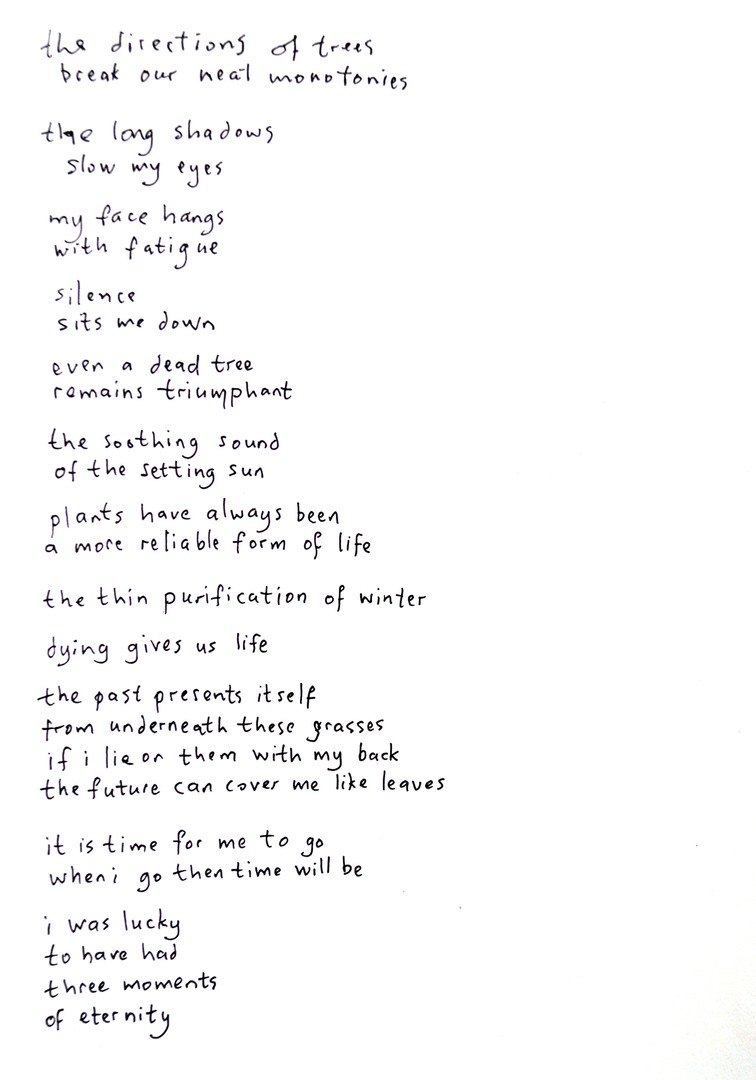 the directions of trees
break our neat monotonies
the long shadows
slow my eyes
my face hangs
with fatigue
silence
sits me down
even a dead tree
remains triumphant
the soothing sound
of the setting sun
plants have always been
a more reliable form of life
the thin purification of winter
dying gives us life
the past presents itself
from underneath these grasses
if i lie on them with my back
the future can cover me like leaves
it is time for me to go
when i go then time will be
i was lucky
to have had
three moments
of eternity